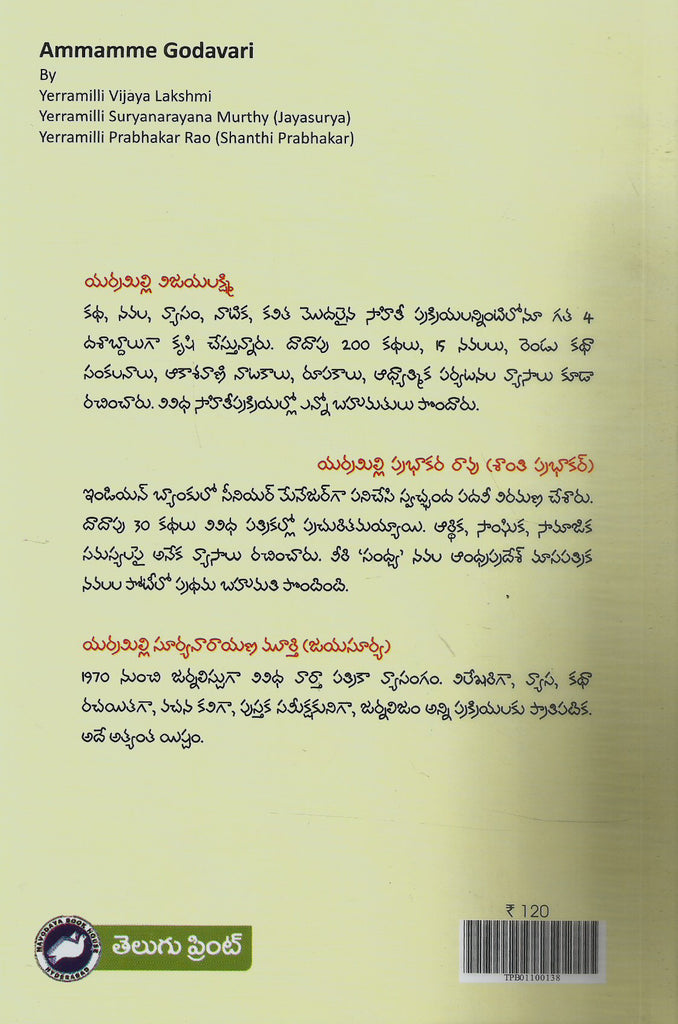 Ammamme Godavari
By
Yerramilli Vijaya Lakshmi
Yerramilli Suryanarayana Murthy (Jayasurya)
Yerramilli Prabhakar Rao (Shanthi Prabhakar)
యర్రమిల్లి విజయలక్ష్మి
కథ, నవల, వ్యాసం, నాటిక, కవిత మొదలైన సాహితీ ప్రక్రియలన్నింటిలోనూ గత 4
దశాబ్దాలుగా కృషి చేస్తున్నారు. దాదాపు 200 కథలు, 15 నవలలు, రెండు కథా
సంకలనాలు, ఆకాశవాణి నాటకాలు, రూపకాలు, ఆధ్యాత్మిక పర్యటనల వ్యాసాలు కూడా
రచించారు. వివిధ సాహితీప్రక్రియల్లో ఎన్నో బహుమతులు పొందారు.
యర్రమిల్లి ప్రభాకర రావు (శాంతి ప్రభాకర్)
ఇండియన్ బ్యాంకులో సీనియర్ మేనేజర్‌గా పనిచేసి స్వచ్ఛంద పదవీ విరమణ చేశారు.
దాదాపు 30 కథలు వివిధ పత్రికల్లో ప్రచురితమయ్యాయి. ఆర్థిక, సాంఘిక, సామాజిక
సమస్యలపై అనేక వ్యాసాలు రచించారు. వీరి 'సంధ్య' నవల ఆంధ్రప్రదేశ్ మాసపత్రిక
నవలల పోటీలో ప్రథమ బహుమతి పొందింది.
యర్రమిల్లి సూర్యనారాయణ మూర్తి (జయసూర్య)
1970 నుంచి జర్నలిస్టుగా వివిధ వార్తా పత్రికా వ్యాసంగం. విలేఖరిగా, వ్యాస, కథా
రచయితగా, వచన కవిగా, పుస్తక సమీక్షకునిగా, జర్నలిజం అన్ని ప్రక్రియలకు ప్రాతిపదిక.
అదే అత్యంత యిష్టం.
₹ 120
NAVODAYA BOOK HOUSE
HYDERABAD
తెలుగు ప్రింట్
TPB01100138